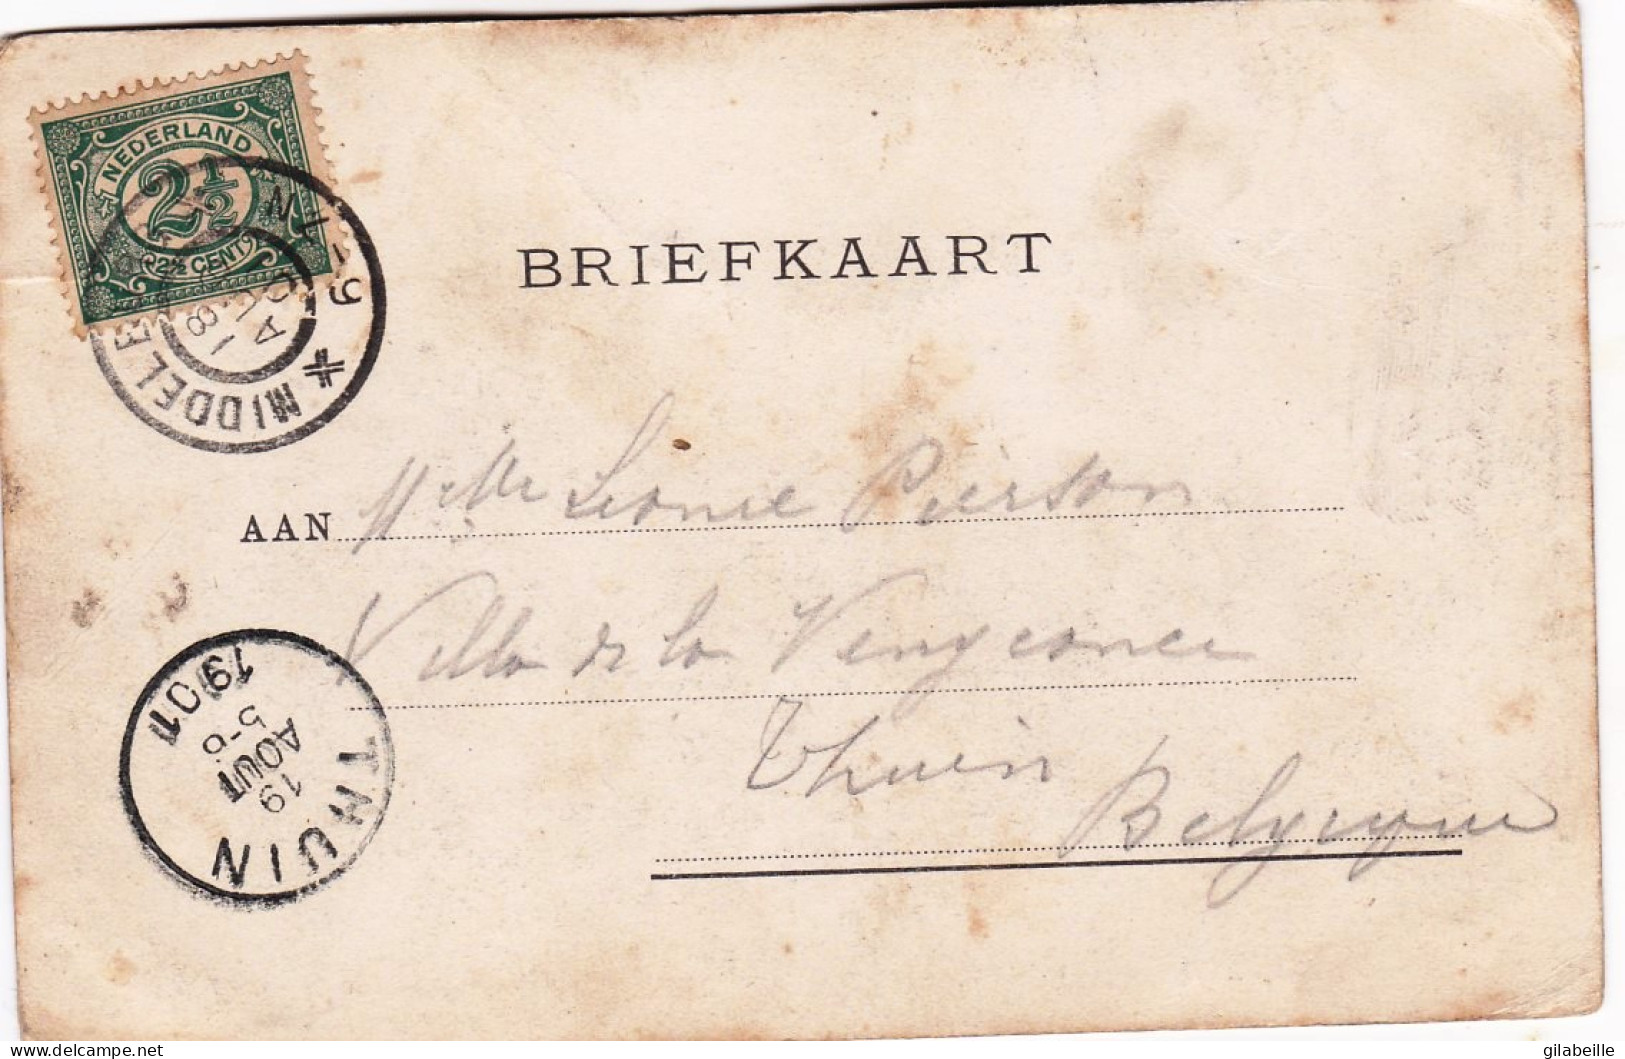 NEDERLAND
2½
2½ CENT
MIDDELB
7-N
18 AUG
BRIEFKAART
AAN Melle Léonie Pierson
Villa de la Vengeance
Thuin
Belgique
THUIN
19
AOUT
5-6
1901
delcampe.net
gilabeille